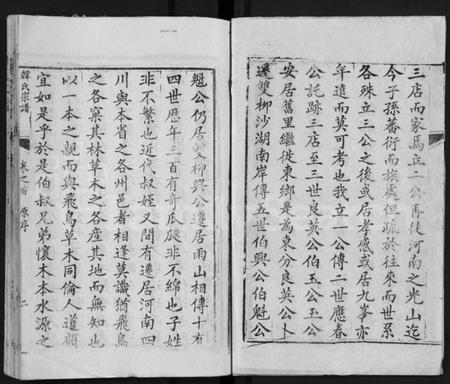 三店而家焉立二公再徙河南之光山迄
今子孫蕃衍而族處但疏於往來而世系
各殊立三公之後或居孝感或居九峯亦
年遠而莫可考也我立一公傳二世應春
公託跡三店至三世良英公伯玉公玉公
安居舊里繼徙東鄉是為東分良英公卜
遷雙柳沙湖南岸傳五世伯興公伯魁公
魁公仍居雙柳興公遷居雨山相傳十有
四世歷年三百有奇瓜瓞非不綿也子姓
非不繁也近代叔姪又間有遷居河南四
川與本省之各州邑者相逢莫識猶飛鳥
之各窠其林草木之各產其地而無知也
以一本之親而與飛鳥草木同倫人道顧
宜如是乎於是伯叔兄弟懷木本水源之
韓氏宗譜
卷之首
原序
二